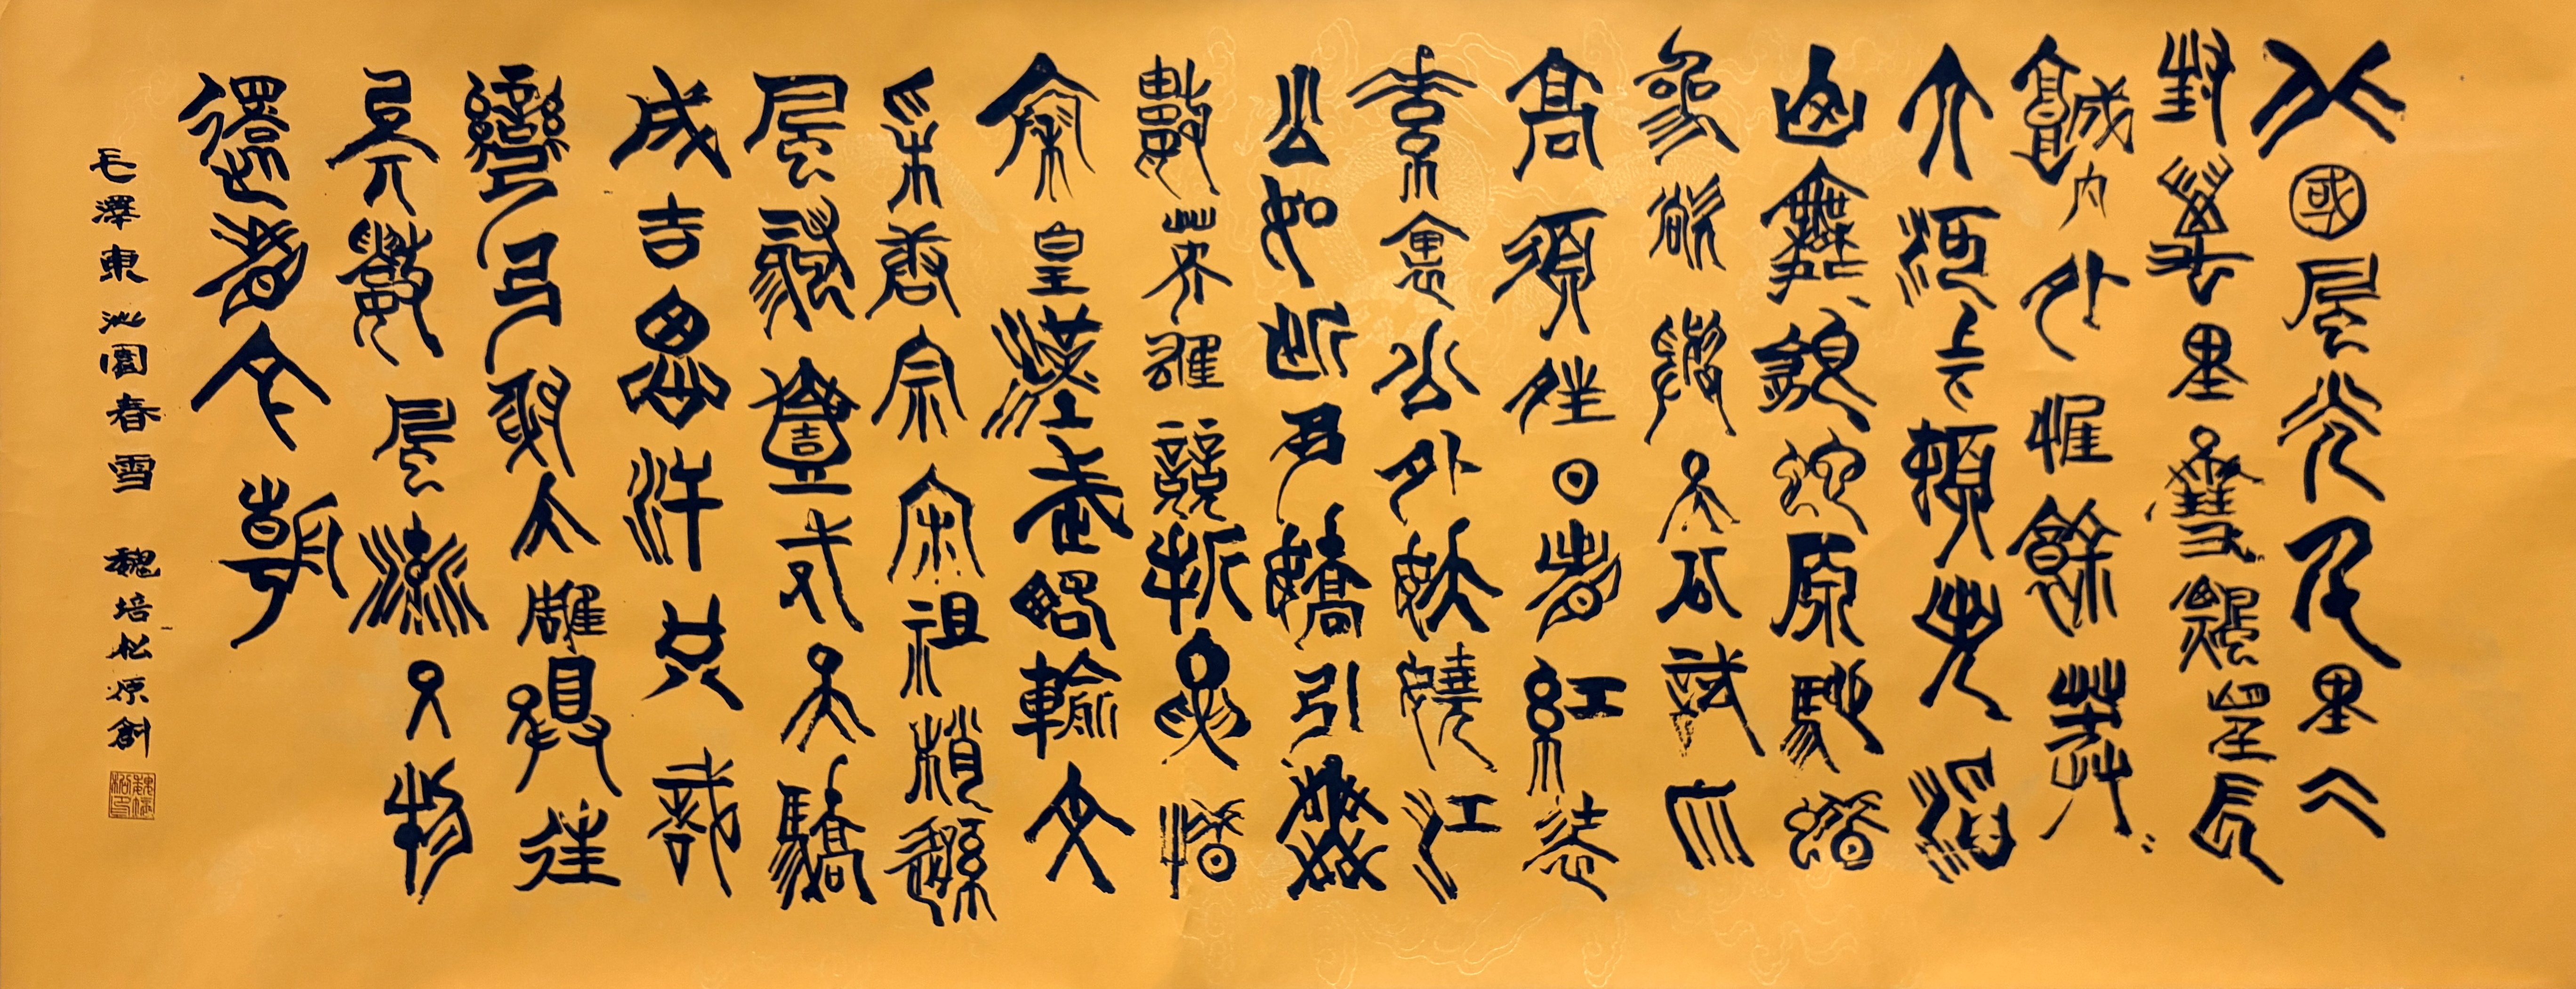 北國風光千里冰
封萬里雪飄望長
城内外惟餘莽〻
大河上下頓失滔〻
山舞銀蛇原馳蠟
象欲與天公試比
高須晴日看紅裝
素裹分外妖嬈江
山如此多嬌引無
數英雄競折腰惜
秦皇漢武略輸文
采唐宗宋祖稍遜
風騷一代天驕
成吉思汗只識
彎弓射大雕俱往
矣數風流人物
還看今朝
毛澤東沁園春雪 魏培松原創